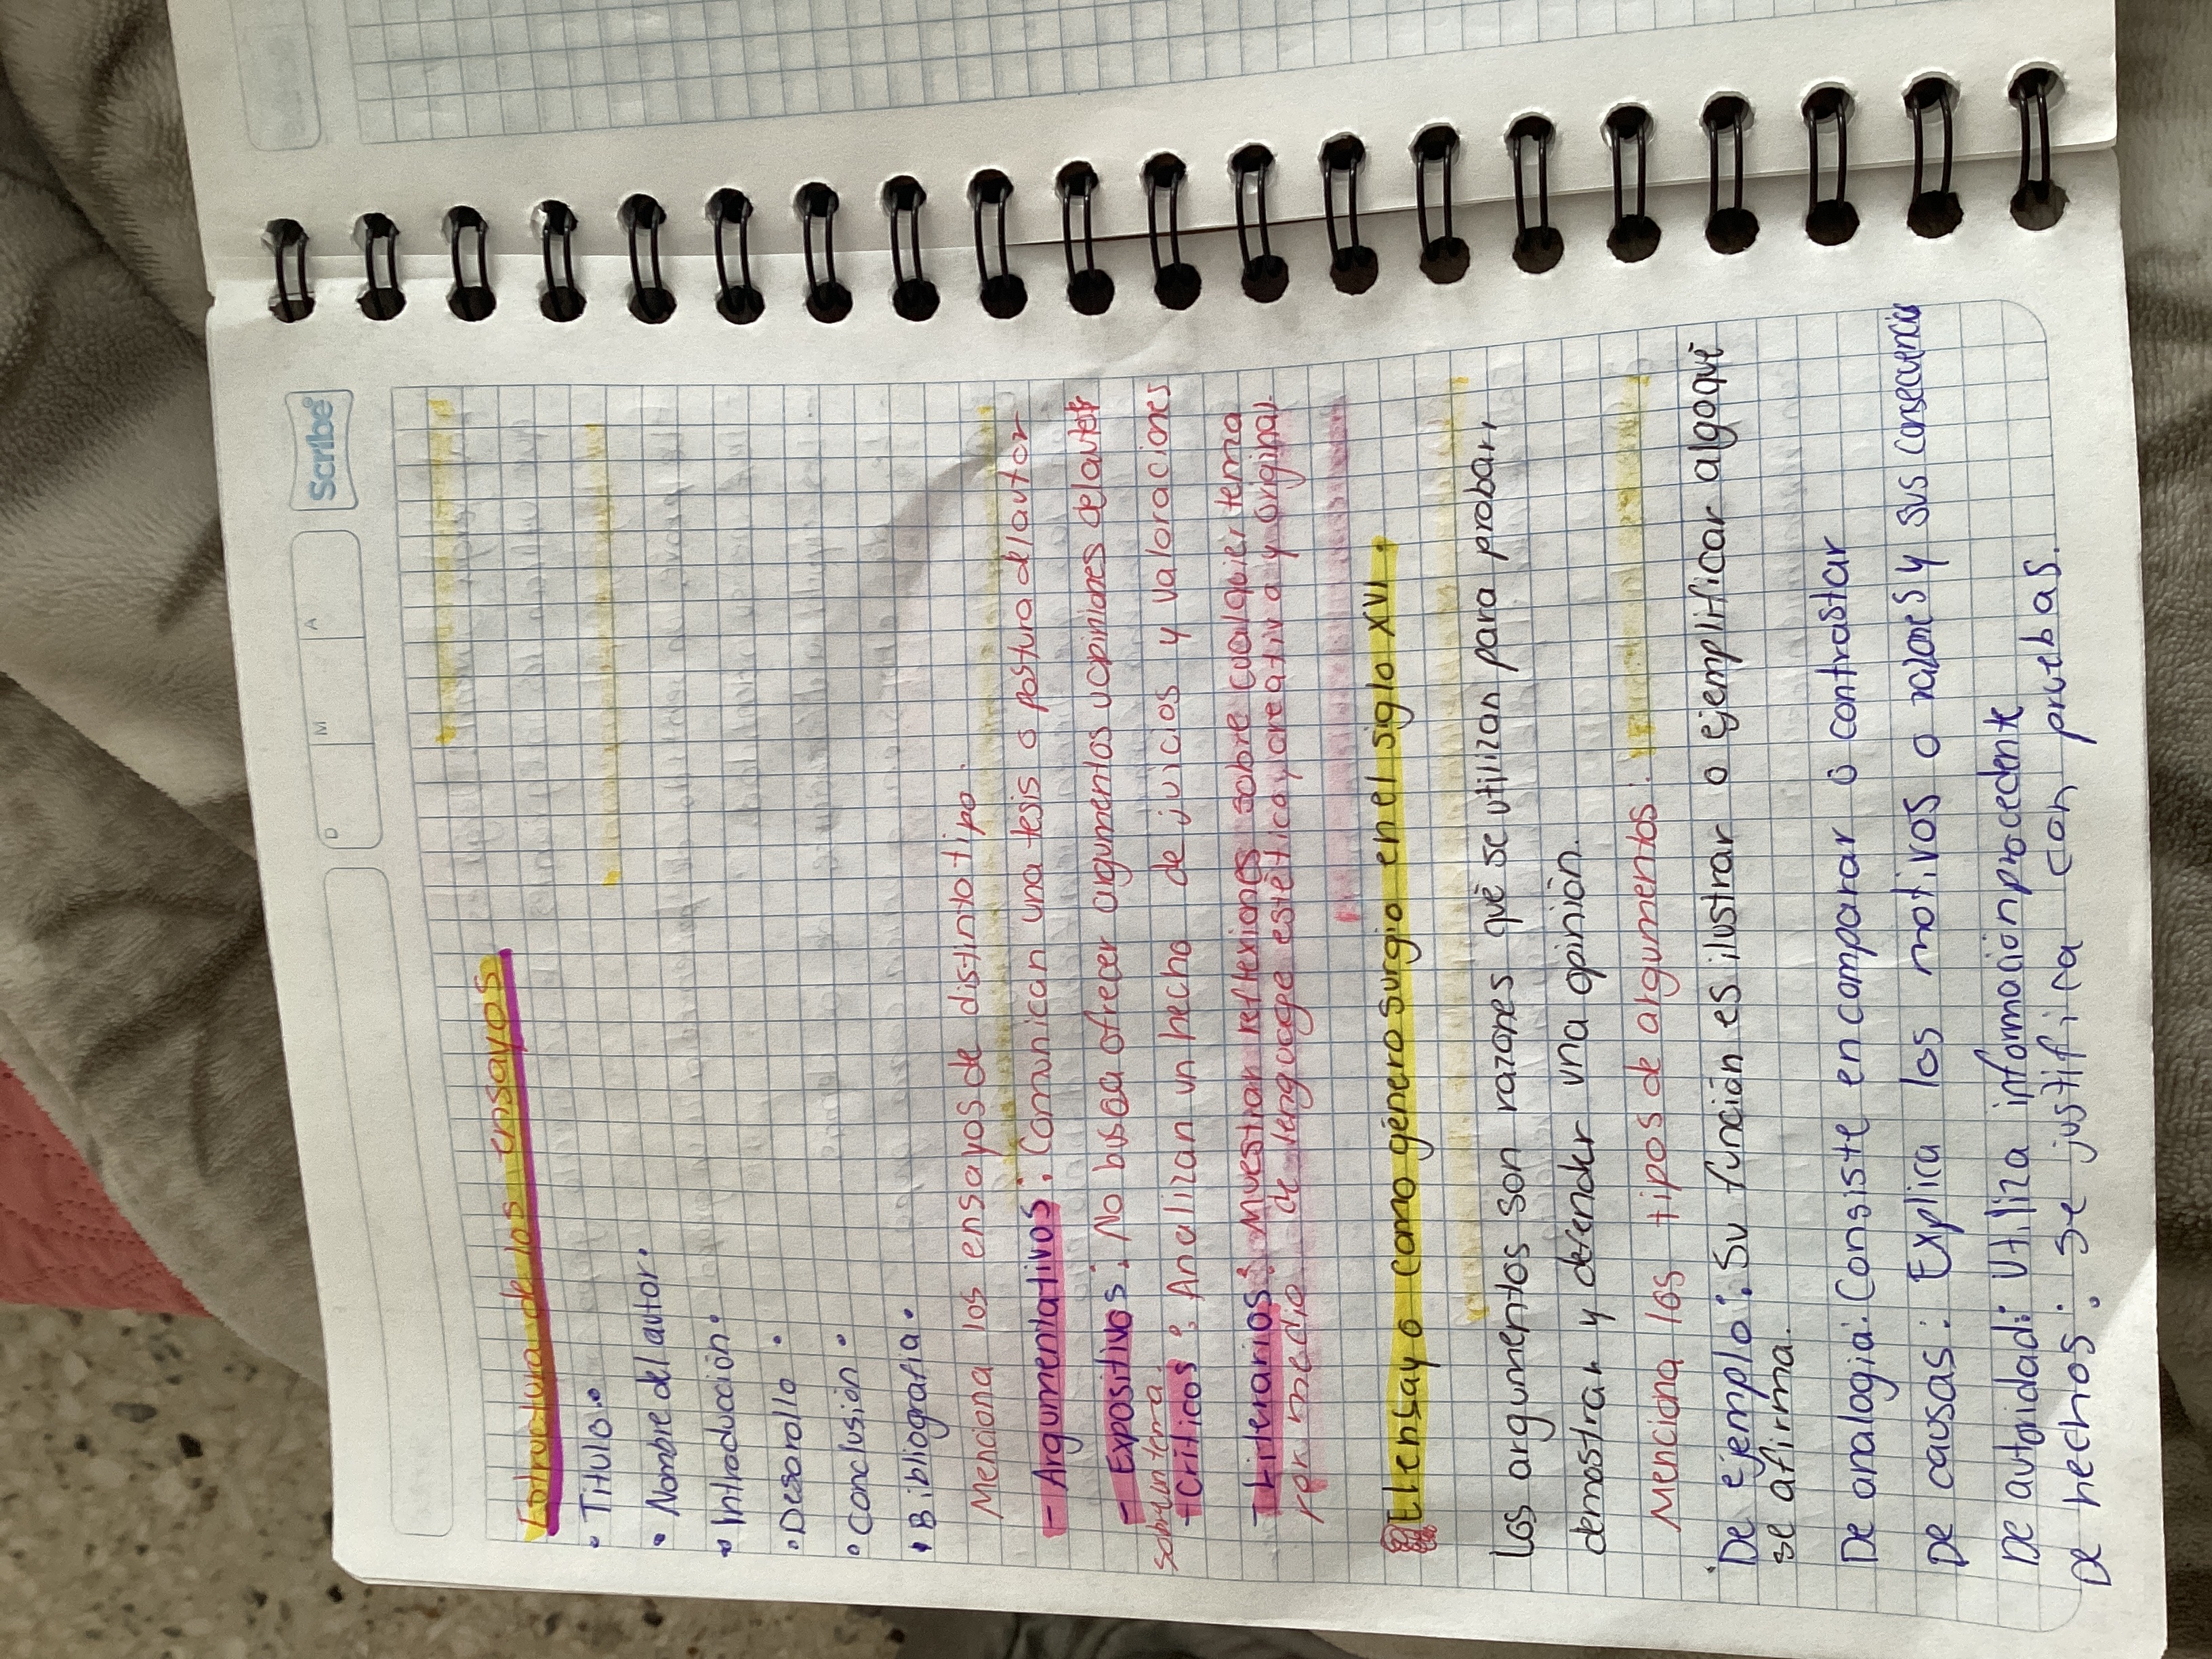 D M A Scribe
Estructura de los ensayos
• Titulo.
• Nombre del autor.
• Introducción.
• Desarollo.
• Conclusión.
• Bibliografia.
Menciona los ensayos de distinto tipo.
- Argumentativos: Comunican una tesis o postura del autor
- Expositivos: No busca ofrecer argumentos y opiniones del autor
sobre un tema.
- Criticos: Analizan un hecho de juicios y valoraciones
- Literarios: Muestran reflexiones sobre cualquier tema
por medio de lenguage estética, creativa y original.
El ensayo como género surgio en el siglo XVI.
Los argumentos son razones que se utilizan para probar,
demostrar y defender una opinión.
Menciona los tipos de argumentos:
De ejemplo: Su función es ilustrar o ejemplificar algo que
se afirma.
De analogia: Consiste en comparar o contrastar
De causas: Explica los motivos o razones y sus consecuencias
De autoridad: Utiliza información procedente
De hechos: Se justifica con pruebas.